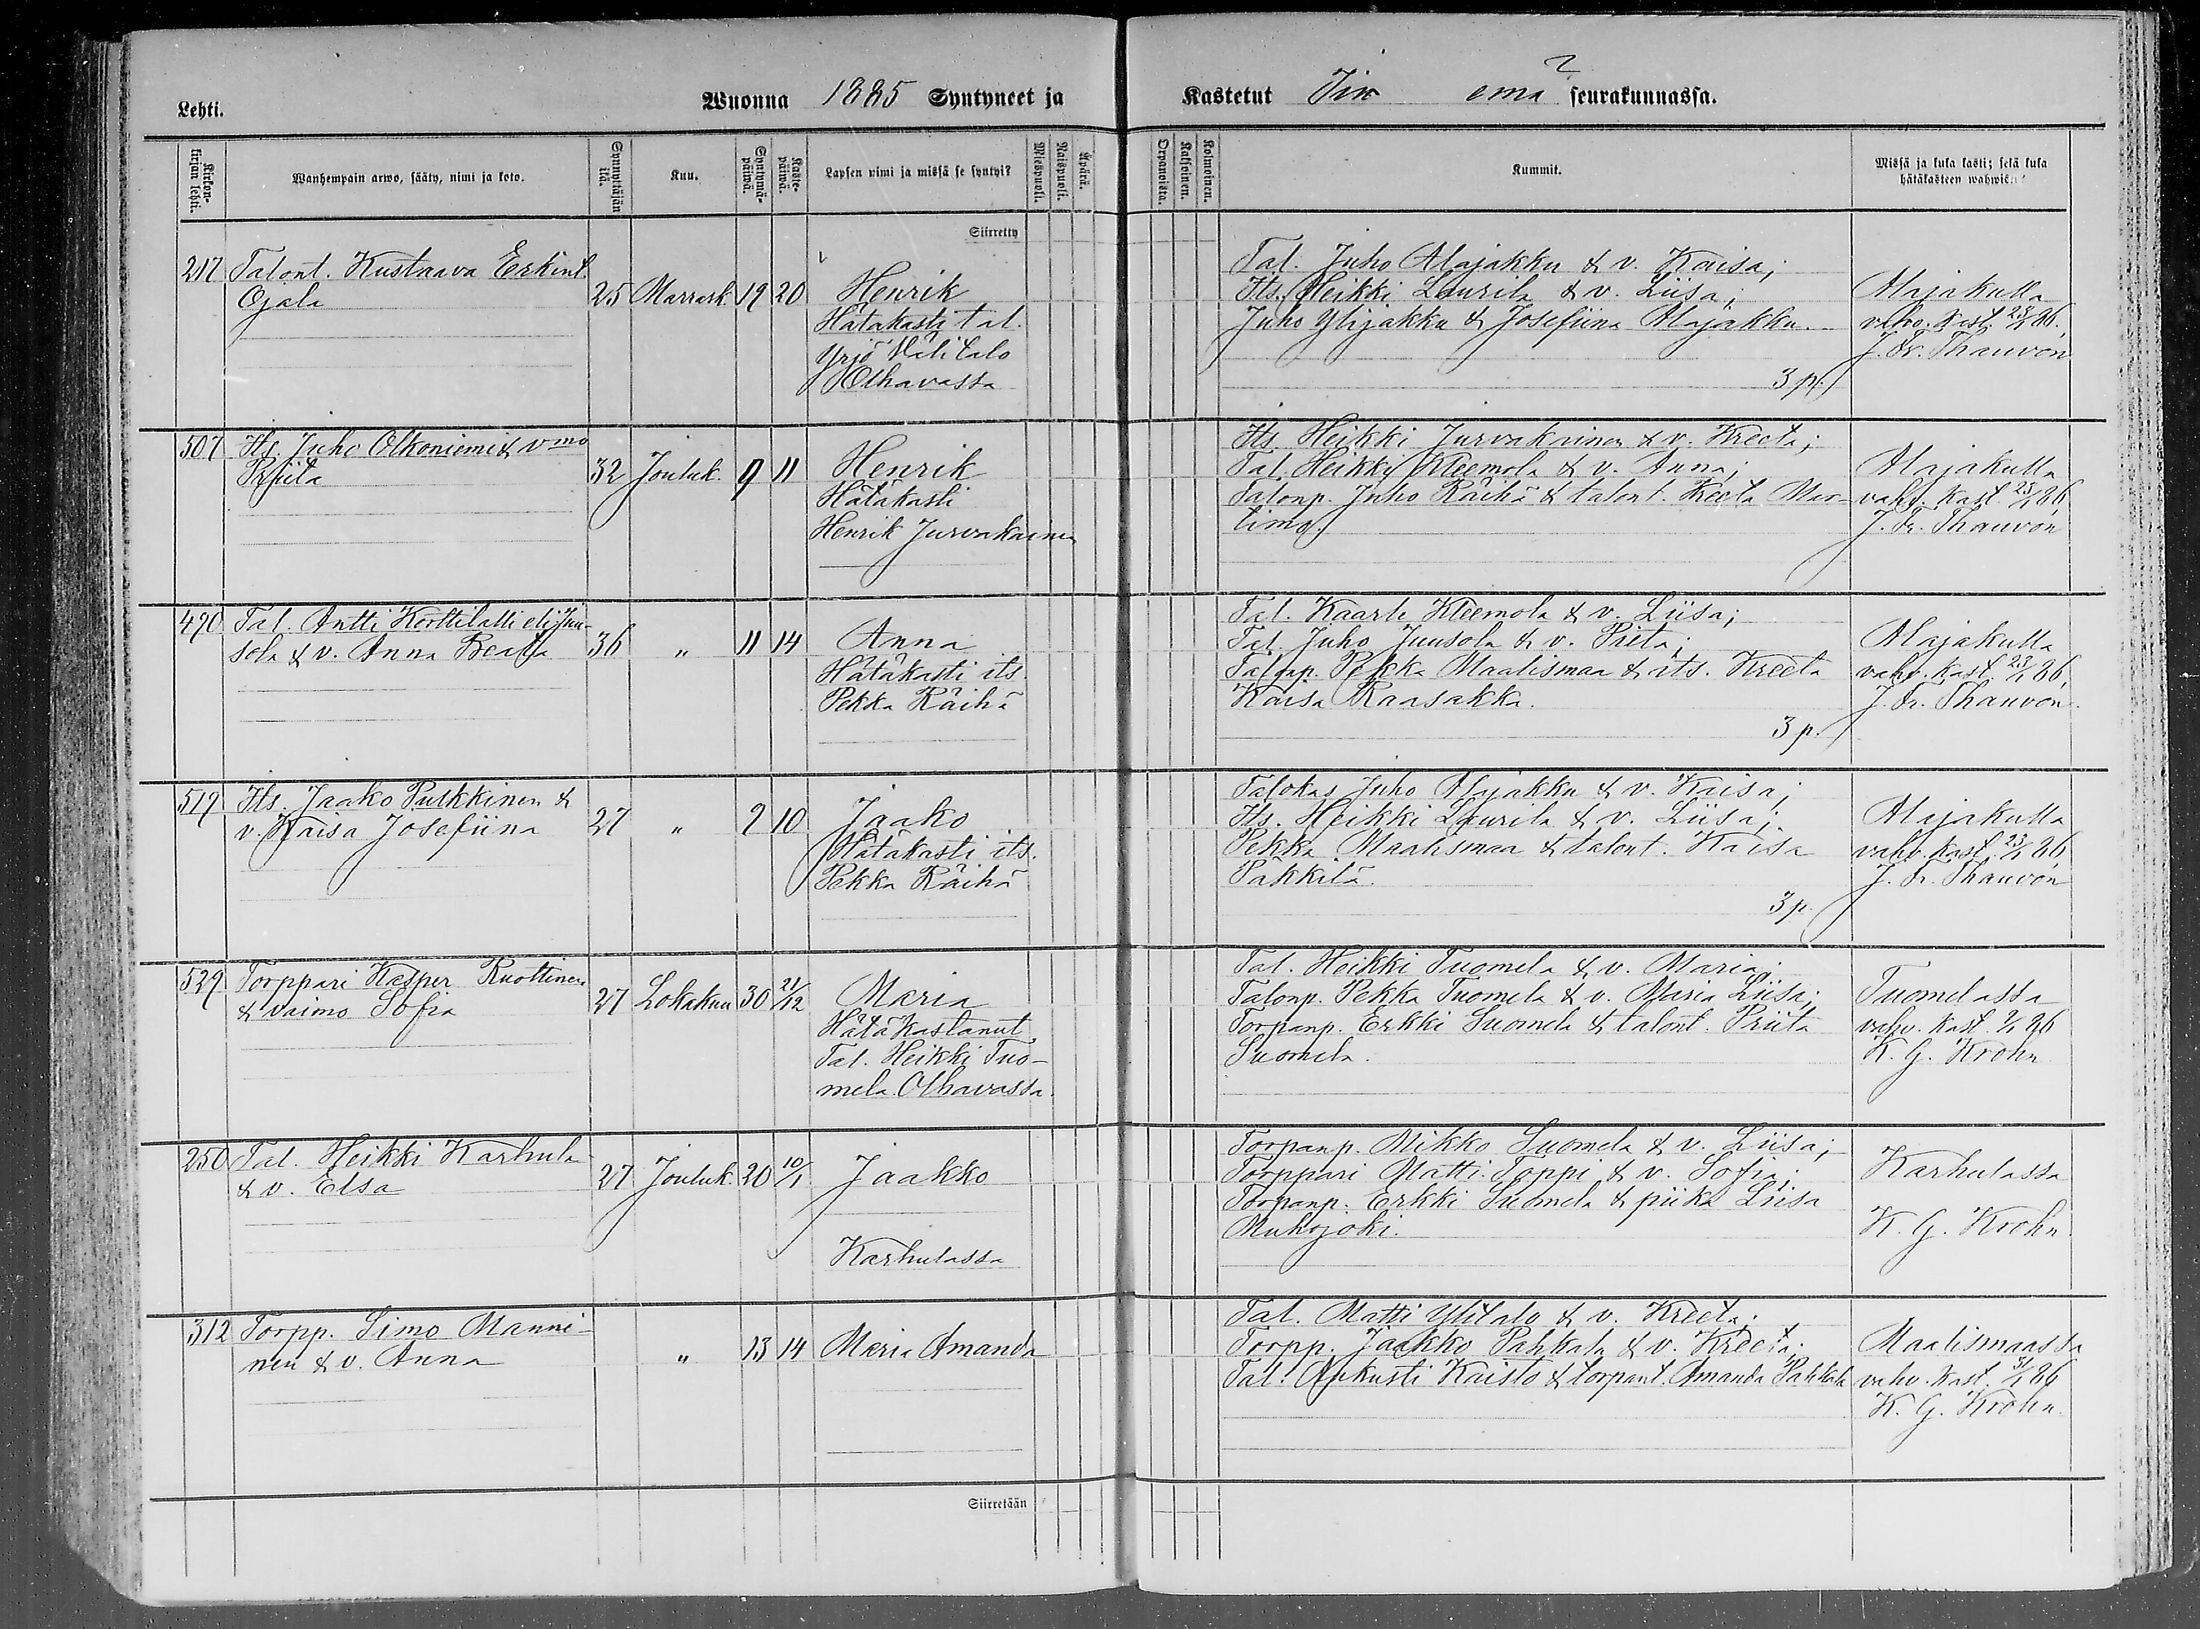 Lehti.
Wuonna 1885 Syntyneet ja
Kastetut Iin emä seurakunnassa.
Kirkon-kirjan lehti.
Wanhempain arwo, sääty, nimi ja koto.
Synnyttäjän ikä.
Kuu.
Syntymä-päiwä.
Kaste-päiwä.
Lapsen nimi ja missä se syntyi?
Miespuoli.
Naispuoli.
Äpärä.
Orpanoista.
Kaksoinen.
Kolmoinen.
Kummit.
Missä ja kuka kasti; sekä kuka
hätäkasteen wahwis
Siirretty
217 Talont. Kustaava Erkint.
Ojala
25 Marrask. 19 20 Henrik
Hätäkasti tal.
Yrjö Välitalo
Olhavassa
Tal. Juho Alajakku & v. Kaisa;
Its. Heikki Laurila & v. Liisa;
Juho Ylijakku & Josefiina Alajakku.
3 p.
Alajakulla
vahv. kast. 23/1 86.
J. Fr. Thauvón
507 Its. Juho Olkoniemi & vmo
Priita
32 Jouluk. 9 11 Henrik
Hätäkasti
Henrik Jurvakainen
Its. Heikki Jurvakainen & v. Kreeta;
Tal. Heikki Kleemola & v. Anna;
Talonp. Juho Räihä & talont. Kreeta Mar-
timo.
Alajakulla
vahv. kast. 23/1 86,
J. Fr. Thauvón
490 Tal. Antti Korttilatti eli Juu-
sola & v. Anna Beata
36 " 11 14 Anna
Hätäkasti its.
Pekka Räihä
Tal. Kaarle Kleemola & v. Liisa;
Tal. Juho Juusola & v. Priita;
Talonp. Pekka Maalismaa & its. Kreeta
Kaisa Raasakka.
3 p.
Alajakulla
vahv. kast. 23/1 86,
J. Fr. Thauvón.
519 Its. Jaako Pulkkinen &
v. Kaisa Josefiina
27 " 9 10 Jaako
Hätäkasti its.
Pekka Räihä
Talokas Juho Alajakku & v. Kaisa;
Its. Heikki Laurila & v. Liisa;
Pekka Maalismaa & talont. Kaisa
Pakkila.
3 p.
Alajakulla
vahv. kast. 23/1 86,
J. Fr. Thauvón
529 Torppari Kasper Ruottinen
& vaimo Sofia
27 Lokakuu 30 21/12 Maria
Hätäkastanut
Tal. Heikki Tuo-
mela Olhavassa.
Tal. Heikki Tuomela & v. Maria;
Talonp. Pekka Tuomela & v. Maria Liisa;
Torpanp. Erkki Suomela & talont. Priita
Suomela.
Tuomelassa
vahv. kast. 86
K. G. Krohn
250 Tal. Heikki Karhula
& v. Elsa
27 Jouluk. 20 10/1 Jaakko
Karhulassa
Torpanp. Mikko Suomela & v. Liisa;
Torppari Matti Toppi & v. Sofia;
Torpanp. Erkki Suomela & piika Liisa
Muhojoki.
Karhulassa
K. G. Krohn
312 Torpp. Simo Manni-
nen & v. Anna
" 13 14 Maria Amanda
Tal. Matti Ylitalo & v. Kreeta;
Torpp. Jaakko Pahkala & v. Kreeta;
Tal. Aukusti Kaisto & torpant. Amanda Pahkala
Maalismaassa
vahv. kast. 31/1 86
K. G. Krohn.
Siirretään